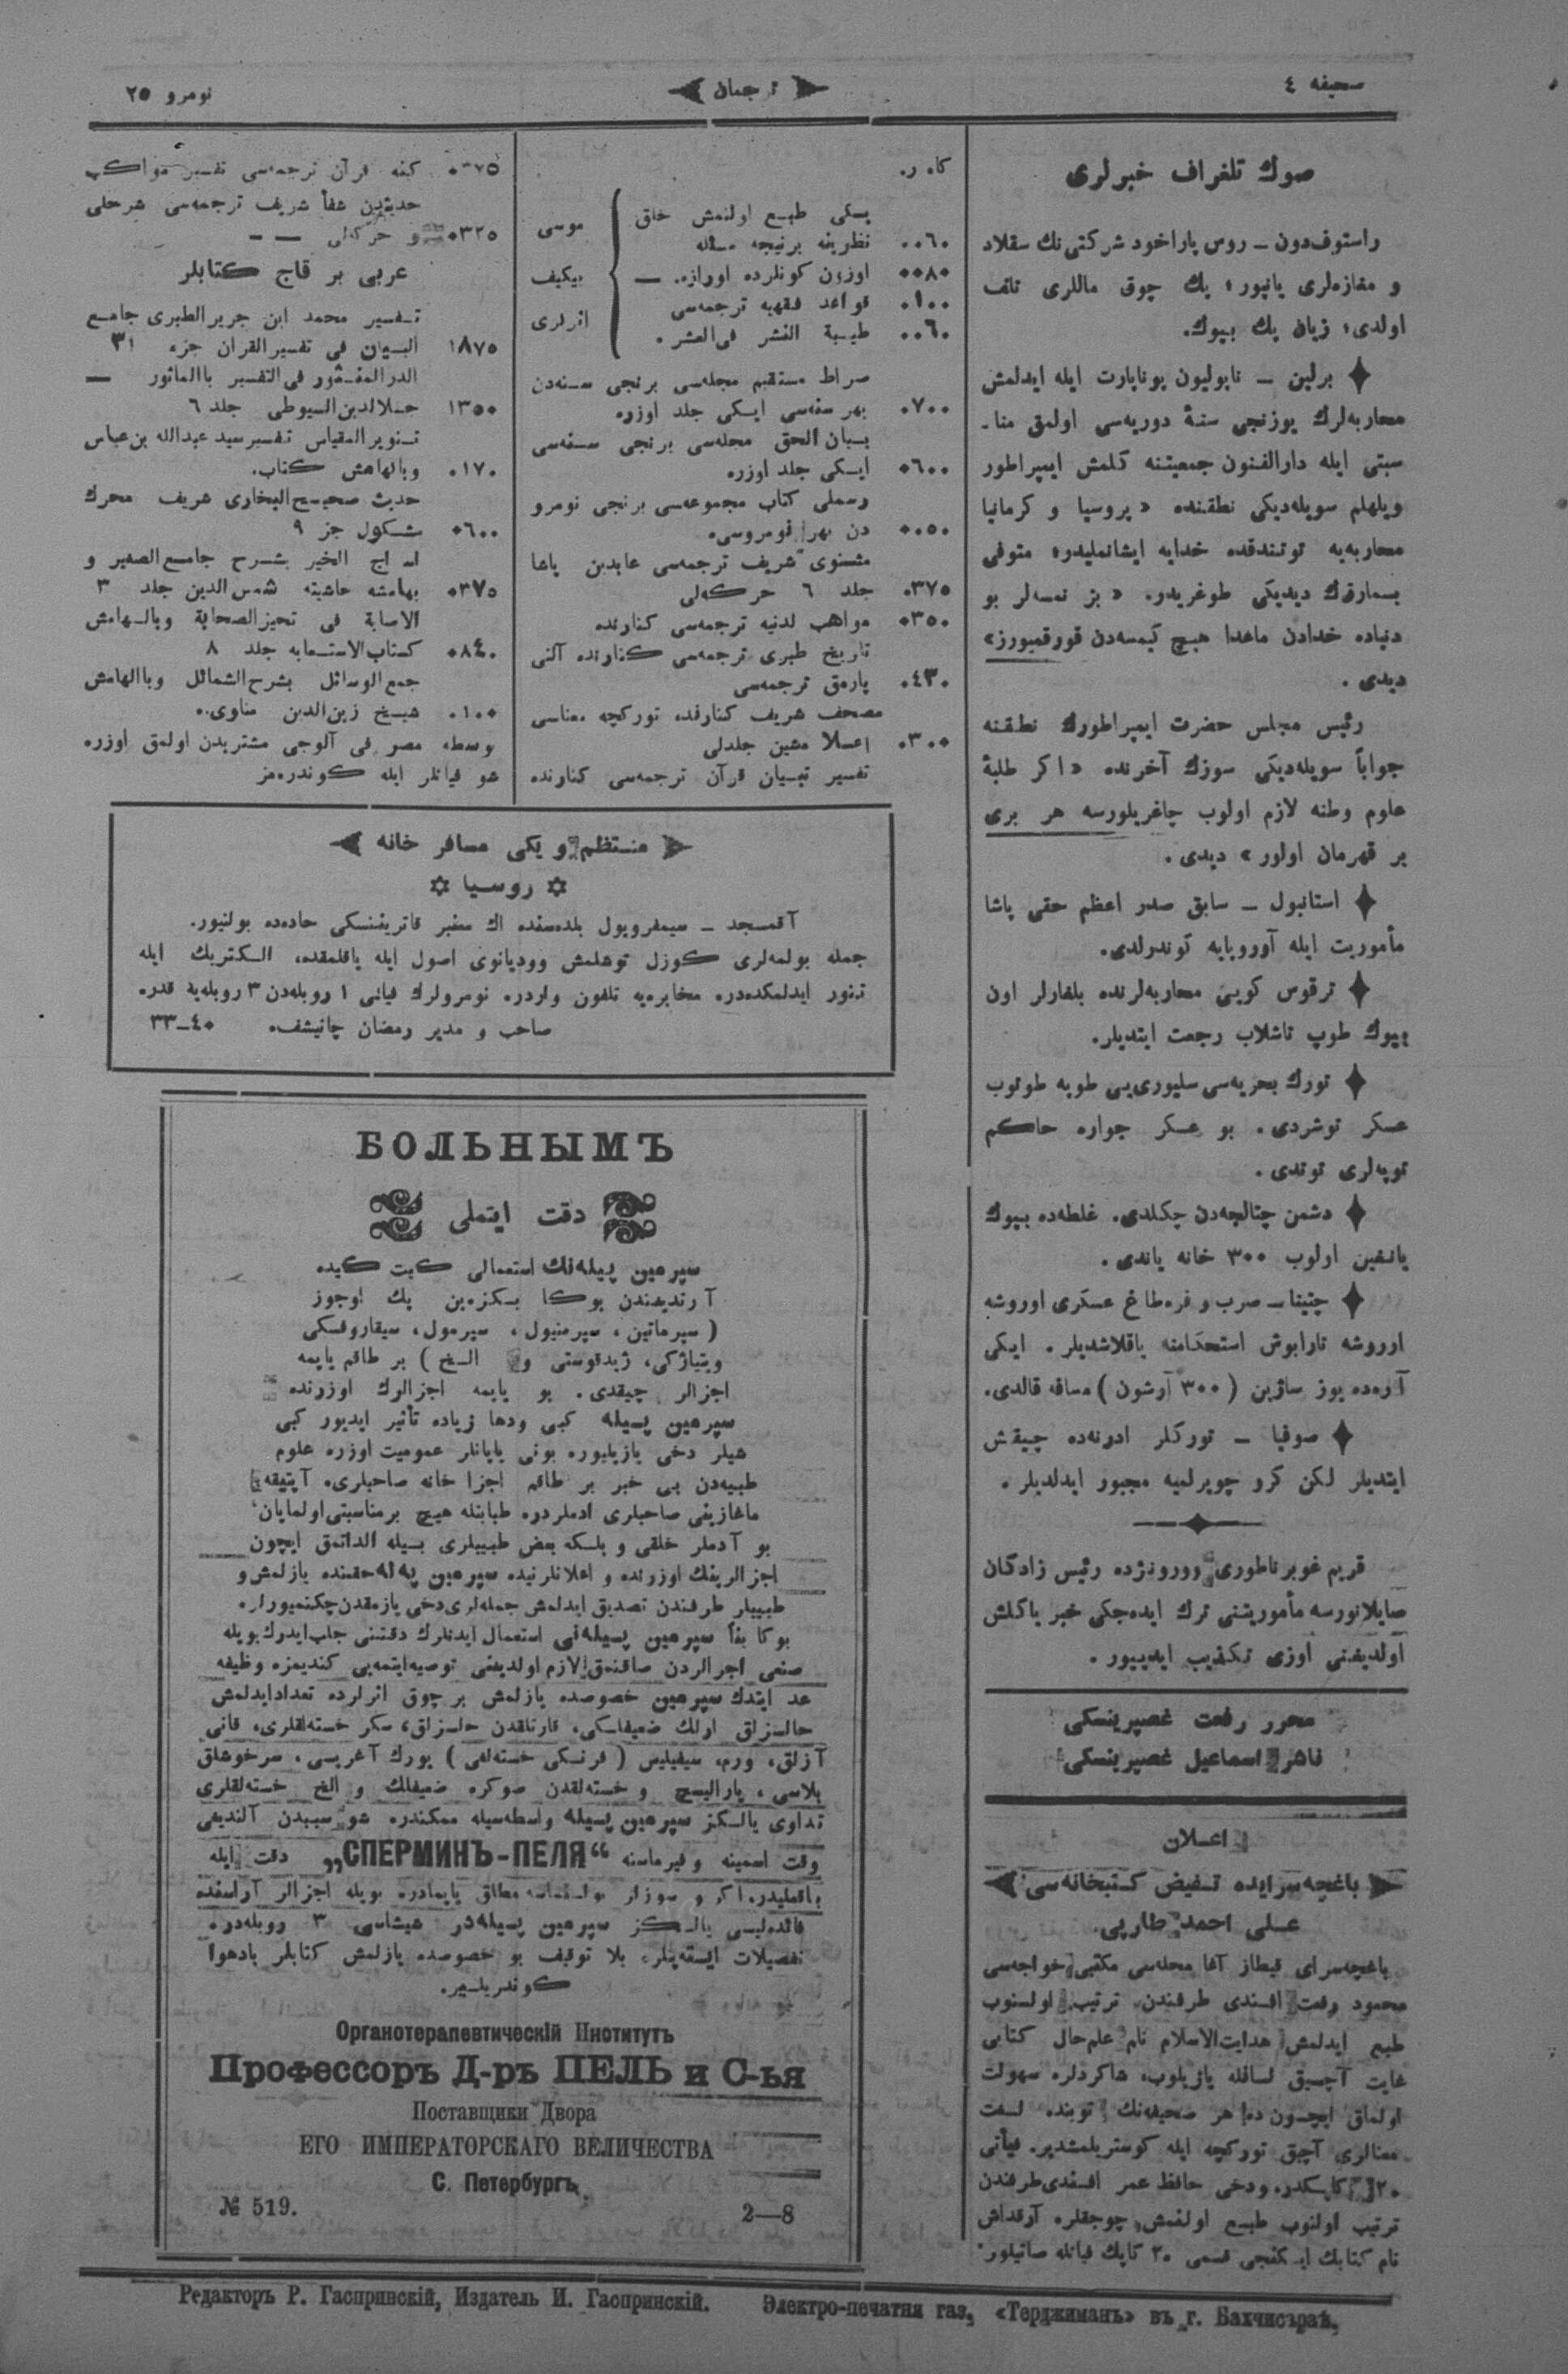 صحيفه ٤
ترجمان
نومرو ٢٥
صوك تلغراف خبرلرى
راستوف‌دون ــ روس پاراخود شركتى‌نك سقلاد
و مغازه‌لرى يانيور؛ پك چوق ماللرى تلف
اولدى؛ زيان پك بيوك.
برلين ــ ناپوليون بوناپارت ايله ايدلمش
محاربه‌لرك يوزنجى سنهٔ دوريه‌سى اولمق منا-
سبتى ايله دارالفنون جمعيتنه كلمش ايمپراطور
ويلهلم سويله‌ديكى نطقنده «پروسيا و كرمانيا
محاربه‌يه توتندقده خدايه ايشانمليدر؛ متوفى
بسمارقك ديديكى طوغريدر. «بز نمسه‌لر بو
دنياده خدادن ماعدا هيچ كيمسه‌دن قورقميورز»
ديدى .
رئيس مجلس حضرت ايمپراطورك نطقنه
جواباً سويله‌ديكى سوزك آخرنده «اكر طلبهٔ
علوم وطنه لازم اولوب چاغريلورسه هر برى
بر قهرمان اولور» ديدى .
استانبول ــ سابق صدر اعظم حقى پاشا
مأموريت ايله آوروپايه كوندرلدى.
ترقوس كويى محاربه‌لرنده بلغارلر اون
بيوك طوپ تاشلاب رجعت ايتديلر.
تورك بحريه‌سى سليورى‌يى طوپه طوتوب
عسكر توشردى . بو عسكر جواره حاكم
توپه‌لرى توتدى .
دشمن چتالجه‌دن چكلدى. غلطه‌ده بيوك
يانغين اولوب ٣٠٠ خانه ياندى .
چتينا ــ صرب و قره‌طاغ عسكرى اوروشه
اوروشه تارابوش استحكامنه ياقلاشديلر . ايكى
آره‌ده يوز ساژين (٣٠٠ آرشون) مسافه قالدى.
صوفيا ــ توركلر ادرنه‌ده چيقش
ايتديلر لكن كرو چويرلميه مجبور ايدلديلر .
قريم غوبرناطورى وورونژده رئيس زادكان
صايلانورسه مأموريتنى ترك ايده‌جكى خبر ياكلش
اولديغنى اوزى تكذيب ايدييور .
محرر رفعت غصپرينسكى
ناشر اسماعيل غصپرينسكى
اعلان
باغچه‌سرايده تفيض كتبخانه‌سى
على احمد طارپى.
باغچه‌سراى قيطاز آغا محله‌سى مكتبى خواجه‌سى
محمود رفعت افندى طرفندن ترتيب اولنوب
طبع ايدلمش هدايت‌الاسلام نام علم‌حال كتابى
غايت آچيق لسانله يازيلوب، شاكردلره سهولت
اولماق ايچون ده هر صحيفه‌نك توبنده لغت
معنالرى آچق توركچه ايله كوستريلمشدير. فيأتى
٢٠ كاپكدر. ودخى حافظ عمر افندى طرفندن
ترتيب اولنوب طبع اولنمش چوجقلره آرقداش
نام كتابك ايكنجى قسمى ٢٠ كاپك فيأتله صاتيلور
كاه ر.
يسكى طبع اولنمش خلق
نظرينه برنيجه مسئله ٠٠٦٠
اوزون كونلرده اورازه. ــ ٠٠٨٠
قواعد فقهيه ترجمه‌سى ٠١٠٠
طيبة النشر فى‌العشر . ٠٠٦٠
موسى
بيكيف
اثرلرى
صراط مستقيم مجله‌سى برنجى سنه‌دن
بهر سنه‌سى ايكى جلد اوزره ٠٧٠٠
بيان الحق مجله‌سى برنجى سنه‌سى
ايكى جلد اوزره ٠٦٠٠
رسملى كتاب مجموعه‌سى برنجى نومرو
دن بهر نومروسى. ٠٠٥٠
مثنوى شريف ترجمه‌سى عابدين پاشا
جلد ٦ حركه‌لى ٠٣٧٥
مواهب لدنيه ترجمه‌سى كنارنده ٠٣٥٠
تاريخ طبرى ترجمه‌سى كنارنده آلتى
پارمق ترجمه‌سى ٠٤٣٠
مصحف شريف كنارنده توركچه معناسى
اعلا مشين جلدلى ٠٣٠٠
تفسير تبيان قرآن ترجمه‌سى كنارنده
كنه قرآن ترجمه‌سى تفسير مواكب ٠٣٧٥
شفأ شريف ترجمه‌سى شرحلى
و حركه‌لى ــ ــ ٠٣٢٥
عربى بر قاچ كتابلر
تفسير محمد ابن جريرالطبرى جامع
البيان فى تفسيرالقران جزء ٣١ ١٨٧٥
الدرالمنثور فى‌التفسير باالماثور ــ
جلالدين‌السيوطى جلد ٦ ١٣٥٠
تنويرالمقياس تفسير سيد عبدالله بن‌عباس
وبالهامش كتاب. ٠١٧٠
حديث صحيح‌البخارى شريف محرك
مشكول جز ٩ ٠٦٠٠
الخير بشرح جامع‌الصغير و
بهامشه حاشيته شمس‌الدين جلد ٣ ٠٣٧٥
الاصابة فى تميزالصحابة وبالهامش
كتاب‌الاستعابه جلد ٨ ٠٨٤٠
جمع‌الوسائل بشرح‌الشمائل وباالهامش
شيخ زين‌الدين مناوى. ٠١٠٠
وسطه مصر فى آلوجى مشتريدن اولمق اوزره
شو فياتلر ايله كوندره‌مز
منتظم و يكى مسافر خانه
روسيا
آقمسجد ــ سيمفروپول بلده‌سنده اك معتبر قاتريننسكى جاده‌ده بولنيور.
جمله بولمه‌لرى كوزل توشلمش ووديانوى اصول ايله ياقلمقده، الكتريك ايله
تنور ايدلمكده‌در. مخابره‌يه تلفون واردر. نومرولرك فيأتى ١ روبله‌دن ٣ روبله‌يه قدر.
صاحب و مدير رمضان چانيشف. ٤٠ــ٣٣
БОЛЬНЫМЪ
دقت ايتملى
سپرمين پيله‌نك استعمالى كيت كيده
آرتديغندن بوكا بكزه‌ين پك اوجوز
(سپرماتين، سپرمنيول، سپرمول، سيقاروفسكى
ويتياژكى، ژيدقوستى و الخ) بر طاقم يايمه
اجزالر چيقدى. بو يايمه اجزالرك اوزرنده
سپرمين پيله كبى ودها زياده تأثير ايديور كبى
شيلر دخى يازيليور. بونى ياپانلر عموميت اوزره علوم
طبيه‌دن بى خبر بر طاقم اجزا خانه صاحبلرى، آپتيقه
ماغازينى صاحبلرى ادملردر. طبابتله هيچ برمناسبتى اولمايان
بو آدملر خلقى و بلكه بعض طبيبلرى بيله الداتمق ايچون
اجزالرينك اوزرنده و اعلانلرنيده سپرمين پيله حقنده يازلمش و
طبيبلر طرفندن تصديق ايدلمش جمله‌لرى دخى يازمقدن چكنميورلر.
بوكا بنأ سپرمين پيله‌نى استعمال ايدنلرك دقتنى جلب ايدرك بويله
صنعى اجزالردن صاقنمق لازم اولديغنى توصيه ايتمه‌يى كنديمزه وظيفه
عد ايتدك سپرمين خصوصده يازلمش بر چوق اثرلرده تعداد ايدلمش
حالسزلق ارلك ضعيفلكى، قارتلقدن حالسزلق، سكر خسته‌لقلرى، قانى
آزلق، ورم، سيفيليس (فرنكى خسته‌لغى) يورك آغريسى، سرخوشلق
بلاسى، پاراليچ و خسته‌لقدن صوكره ضعيفلك و الخ خسته‌لقلرى
تداوى يالكز سپرمين پيله واسطه‌سيله ممكندر. شو سببدن آلنديغى
وقت اسمينه و فيرماسنه „СПЕРМИНЪ-ПЕЛЯ“ دقت ايله
باقمليدر. اكر و سوزلر بولنماسه مطلق ياپمادر. بويله اجزالر آراسنده
فائده‌ليسى يالكز سپرمين پيله‌در شيشاسى ٣ روبله‌در.
تفصيلات ايسته‌ينلره بلا توقيف بو خصوصده يازلمش كتابلر بادهوا
كوندريلير.
Органотерапевтическій Институтъ
Профессоръ Д-ръ ПЕЛЬ и С-ья
Поставщики Двора
ЕГО ИМПЕРАТОРСКАГО ВЕЛИЧЕСТВА
С. Петербургъ.
№ 519. 2—8
Редакторъ Р. Гаспринскій, Издатель И. Гаспринскій. Электро-печатня газ, «Терджиманъ» въ г. Бахчисараѣ,